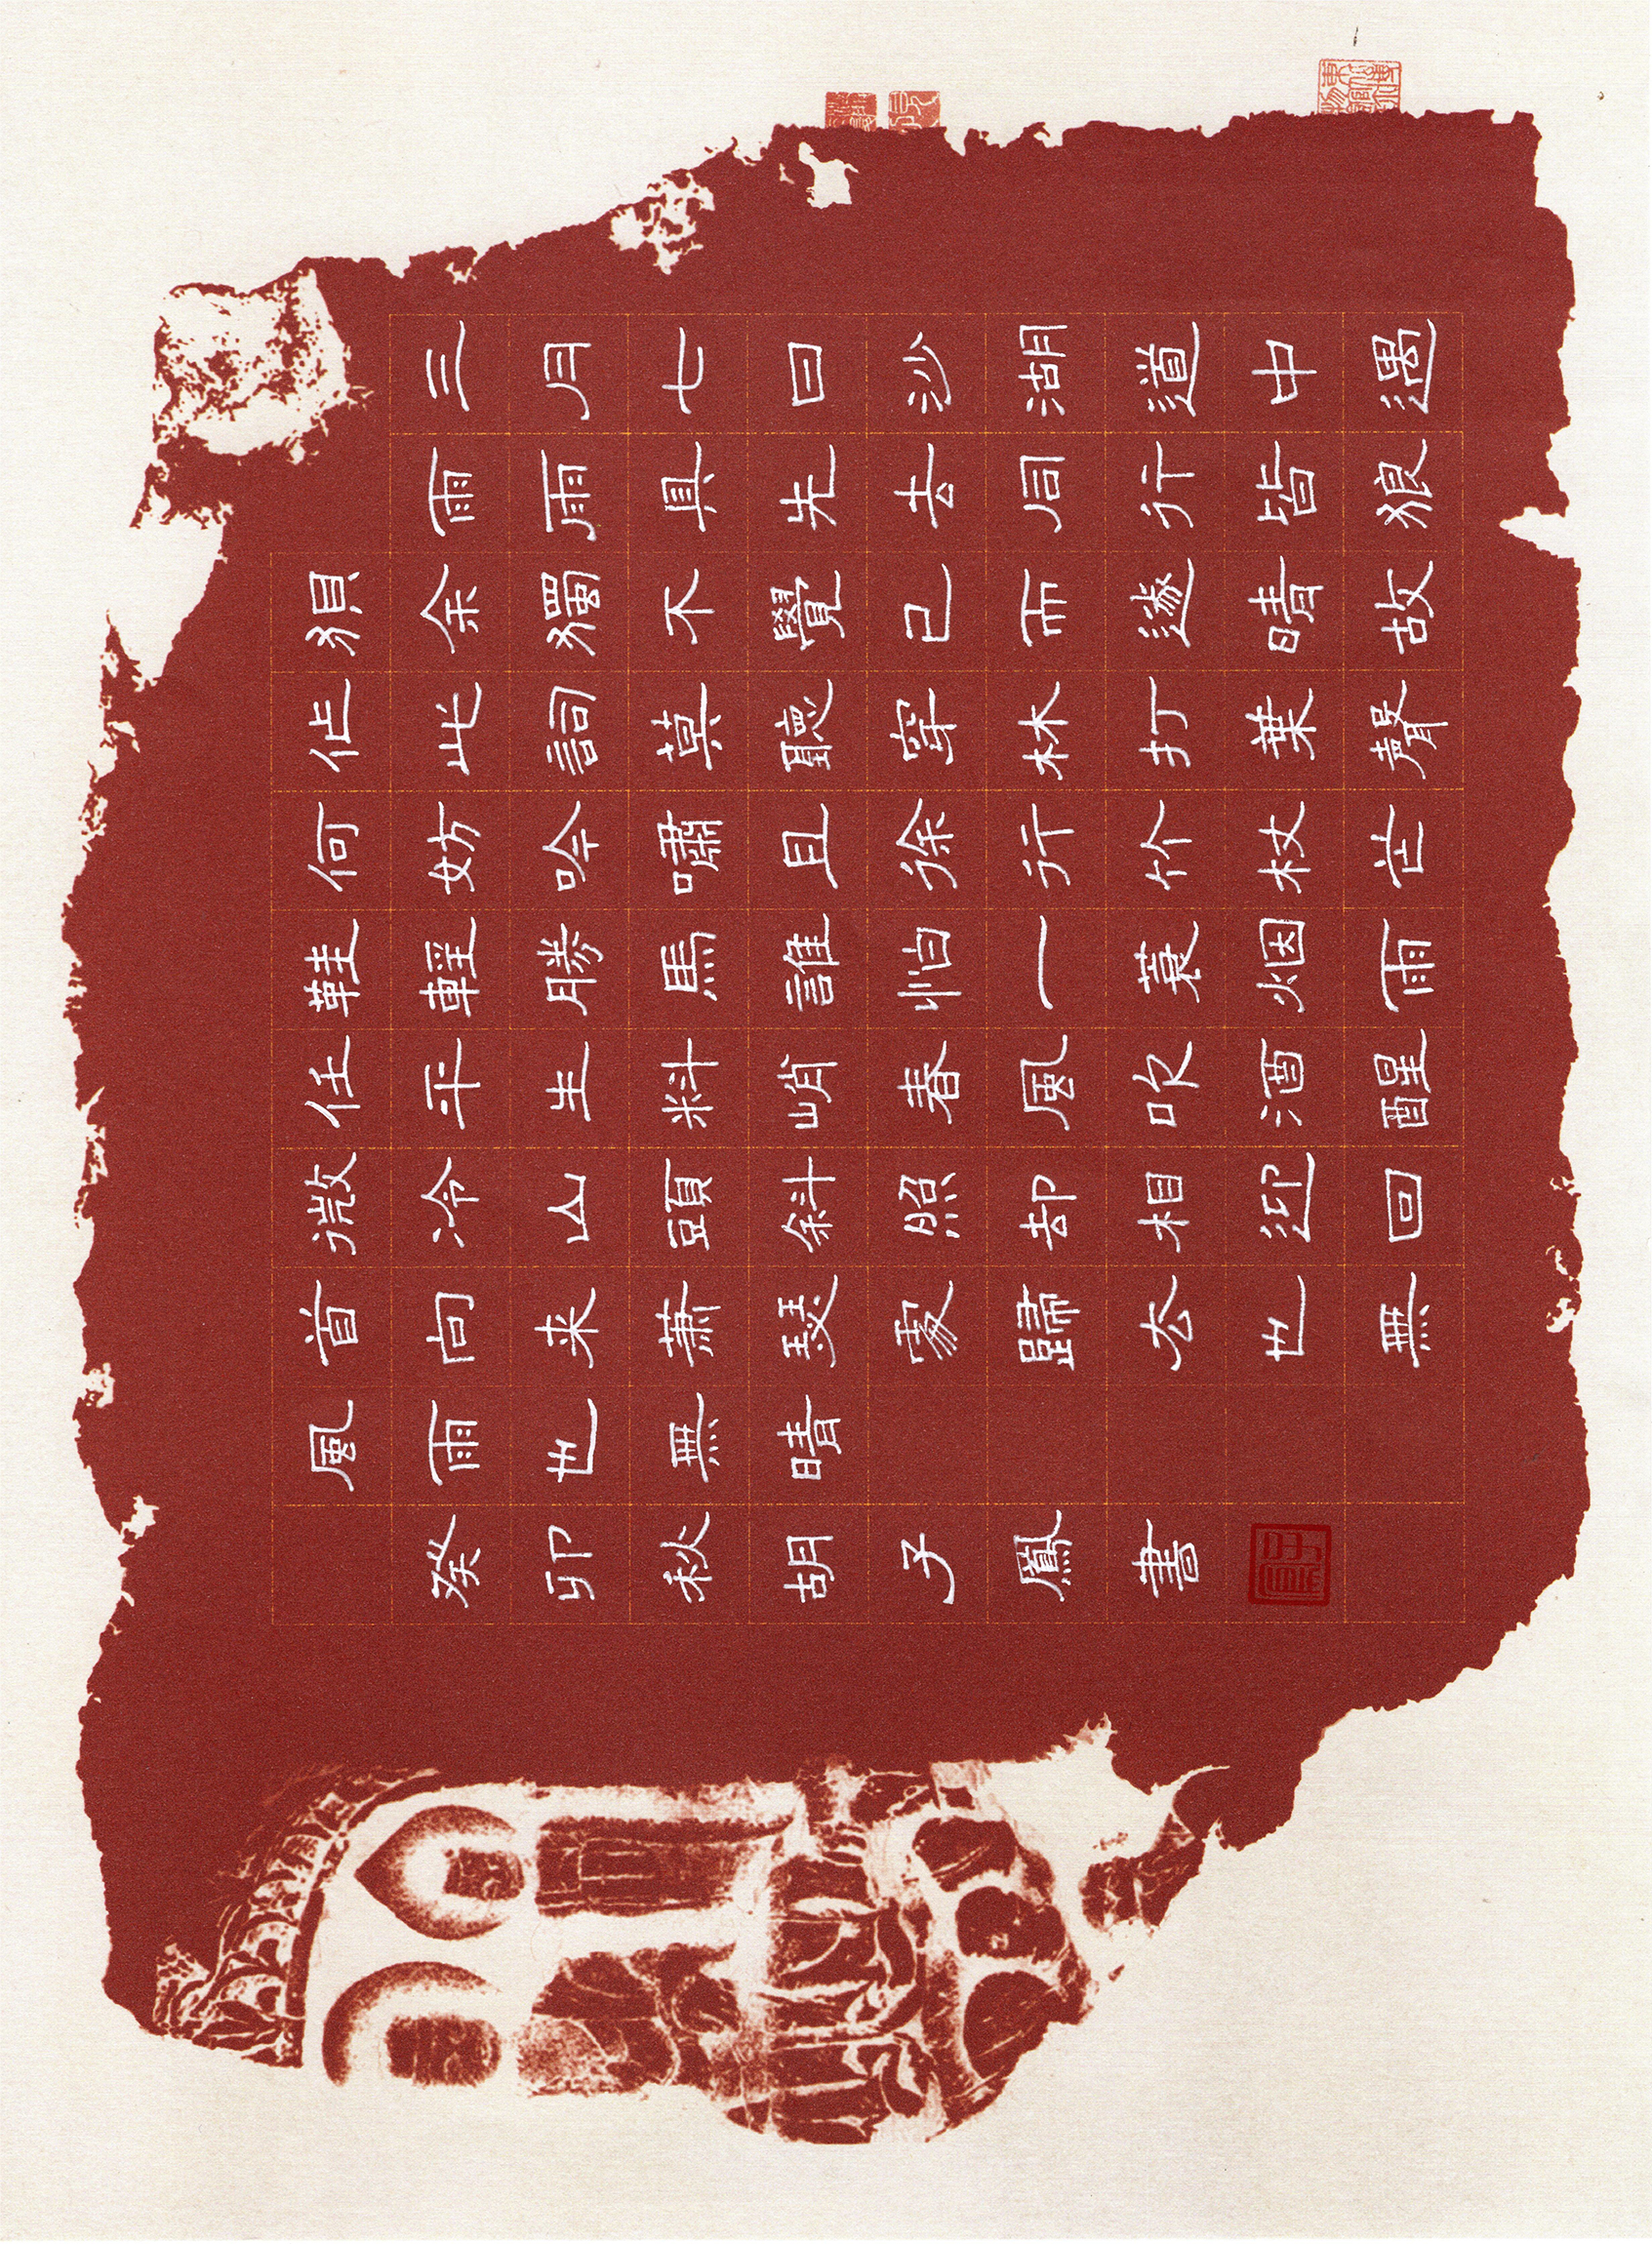 三月七日沙湖道中遇
雨雨具先去同行皆狼
狽余獨不覺已而遂晴故
作此詞莫聽穿林打葉聲
何妨吟嘯且徐行竹杖芒
鞋輕勝馬誰怕一蓑烟雨
任平生料峭春風吹酒醒
微冷山頭斜照却相迎回
首向来蕭瑟處歸厺也無
風雨也無晴
癸卯秋胡子鳳書